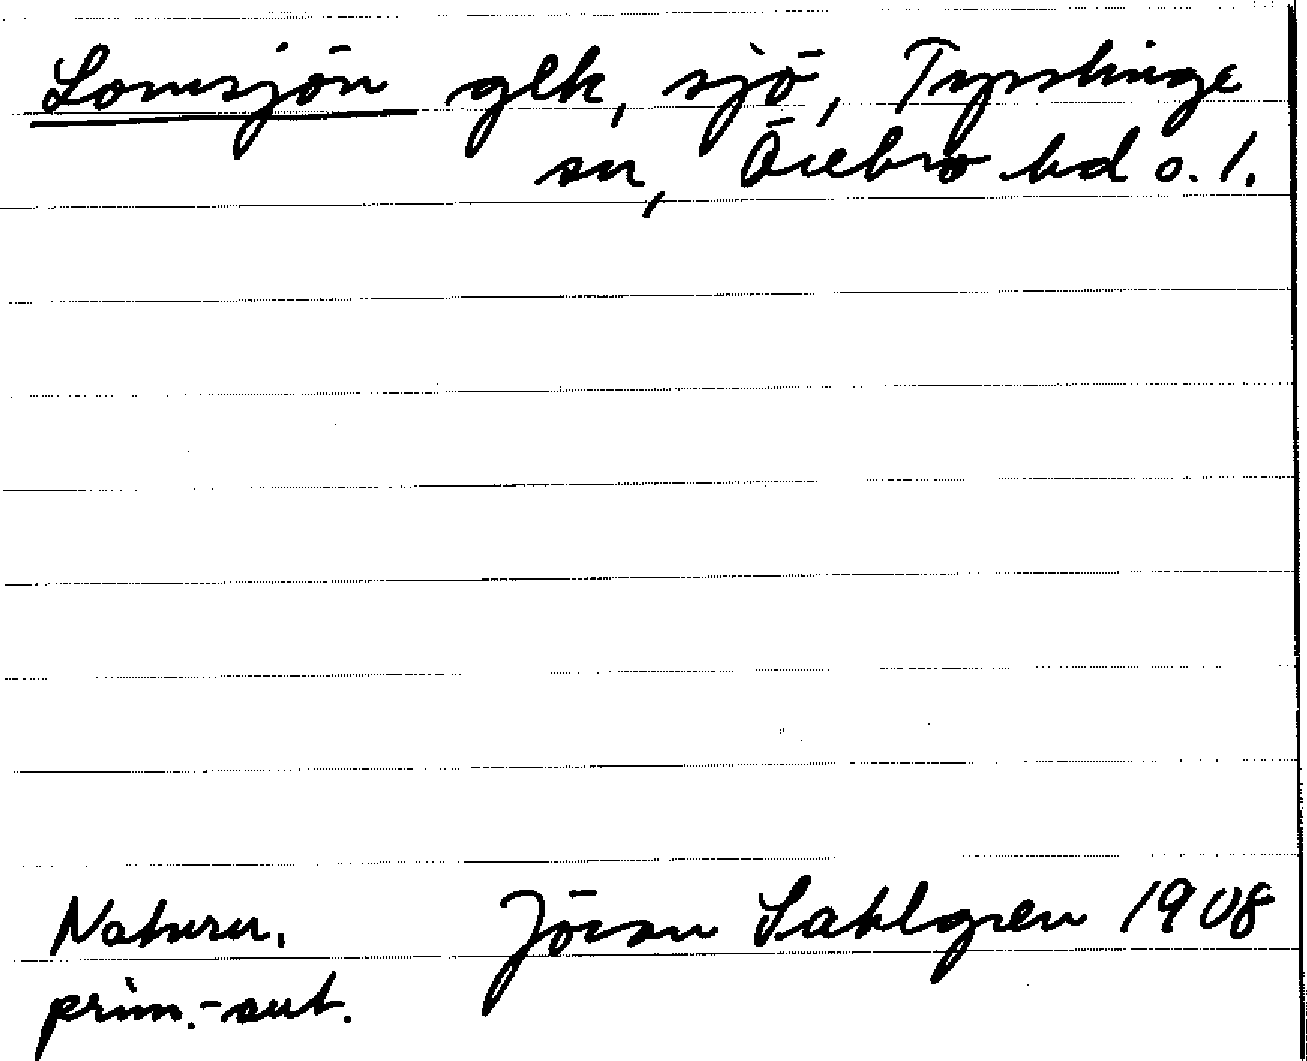 Lomsjön glk, sjö, Tysslinge
sn, Örebro hd o. l.
Naturn. Jöran Sahlgren 1908
prim.-uppt.